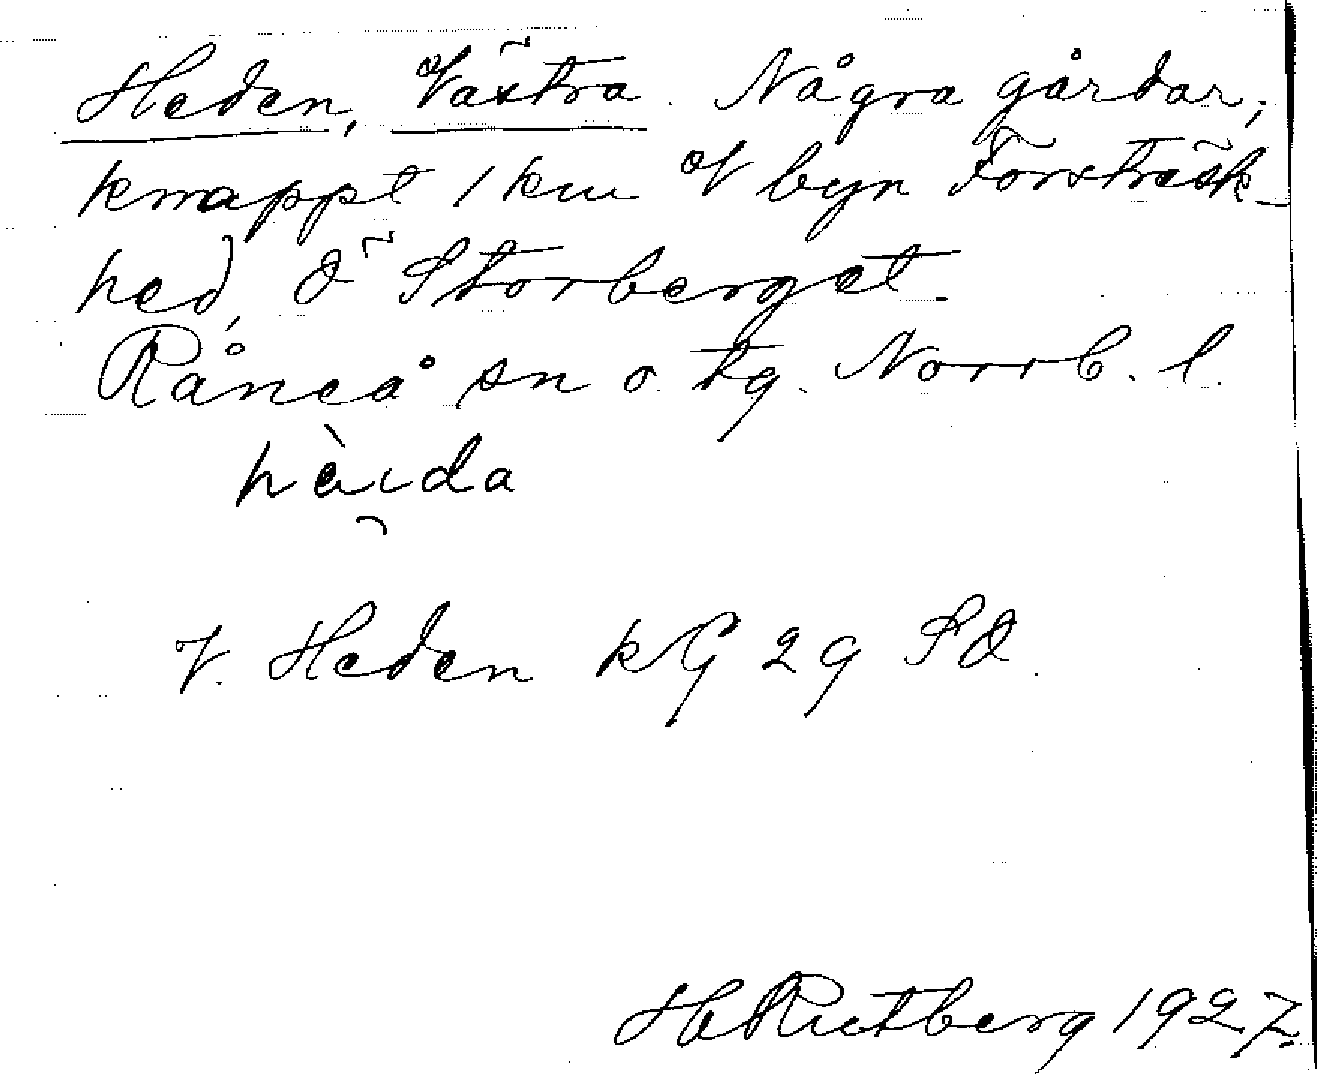 Heden, Västra. Några gårdar,
knappt 1 km V byn Forsträsk-
hed, Ö Storberget.
Råneå sn o. tg. Norrb. l.
hèida
V. Heden kG 29 SÖ.
H Rutberg 1927.